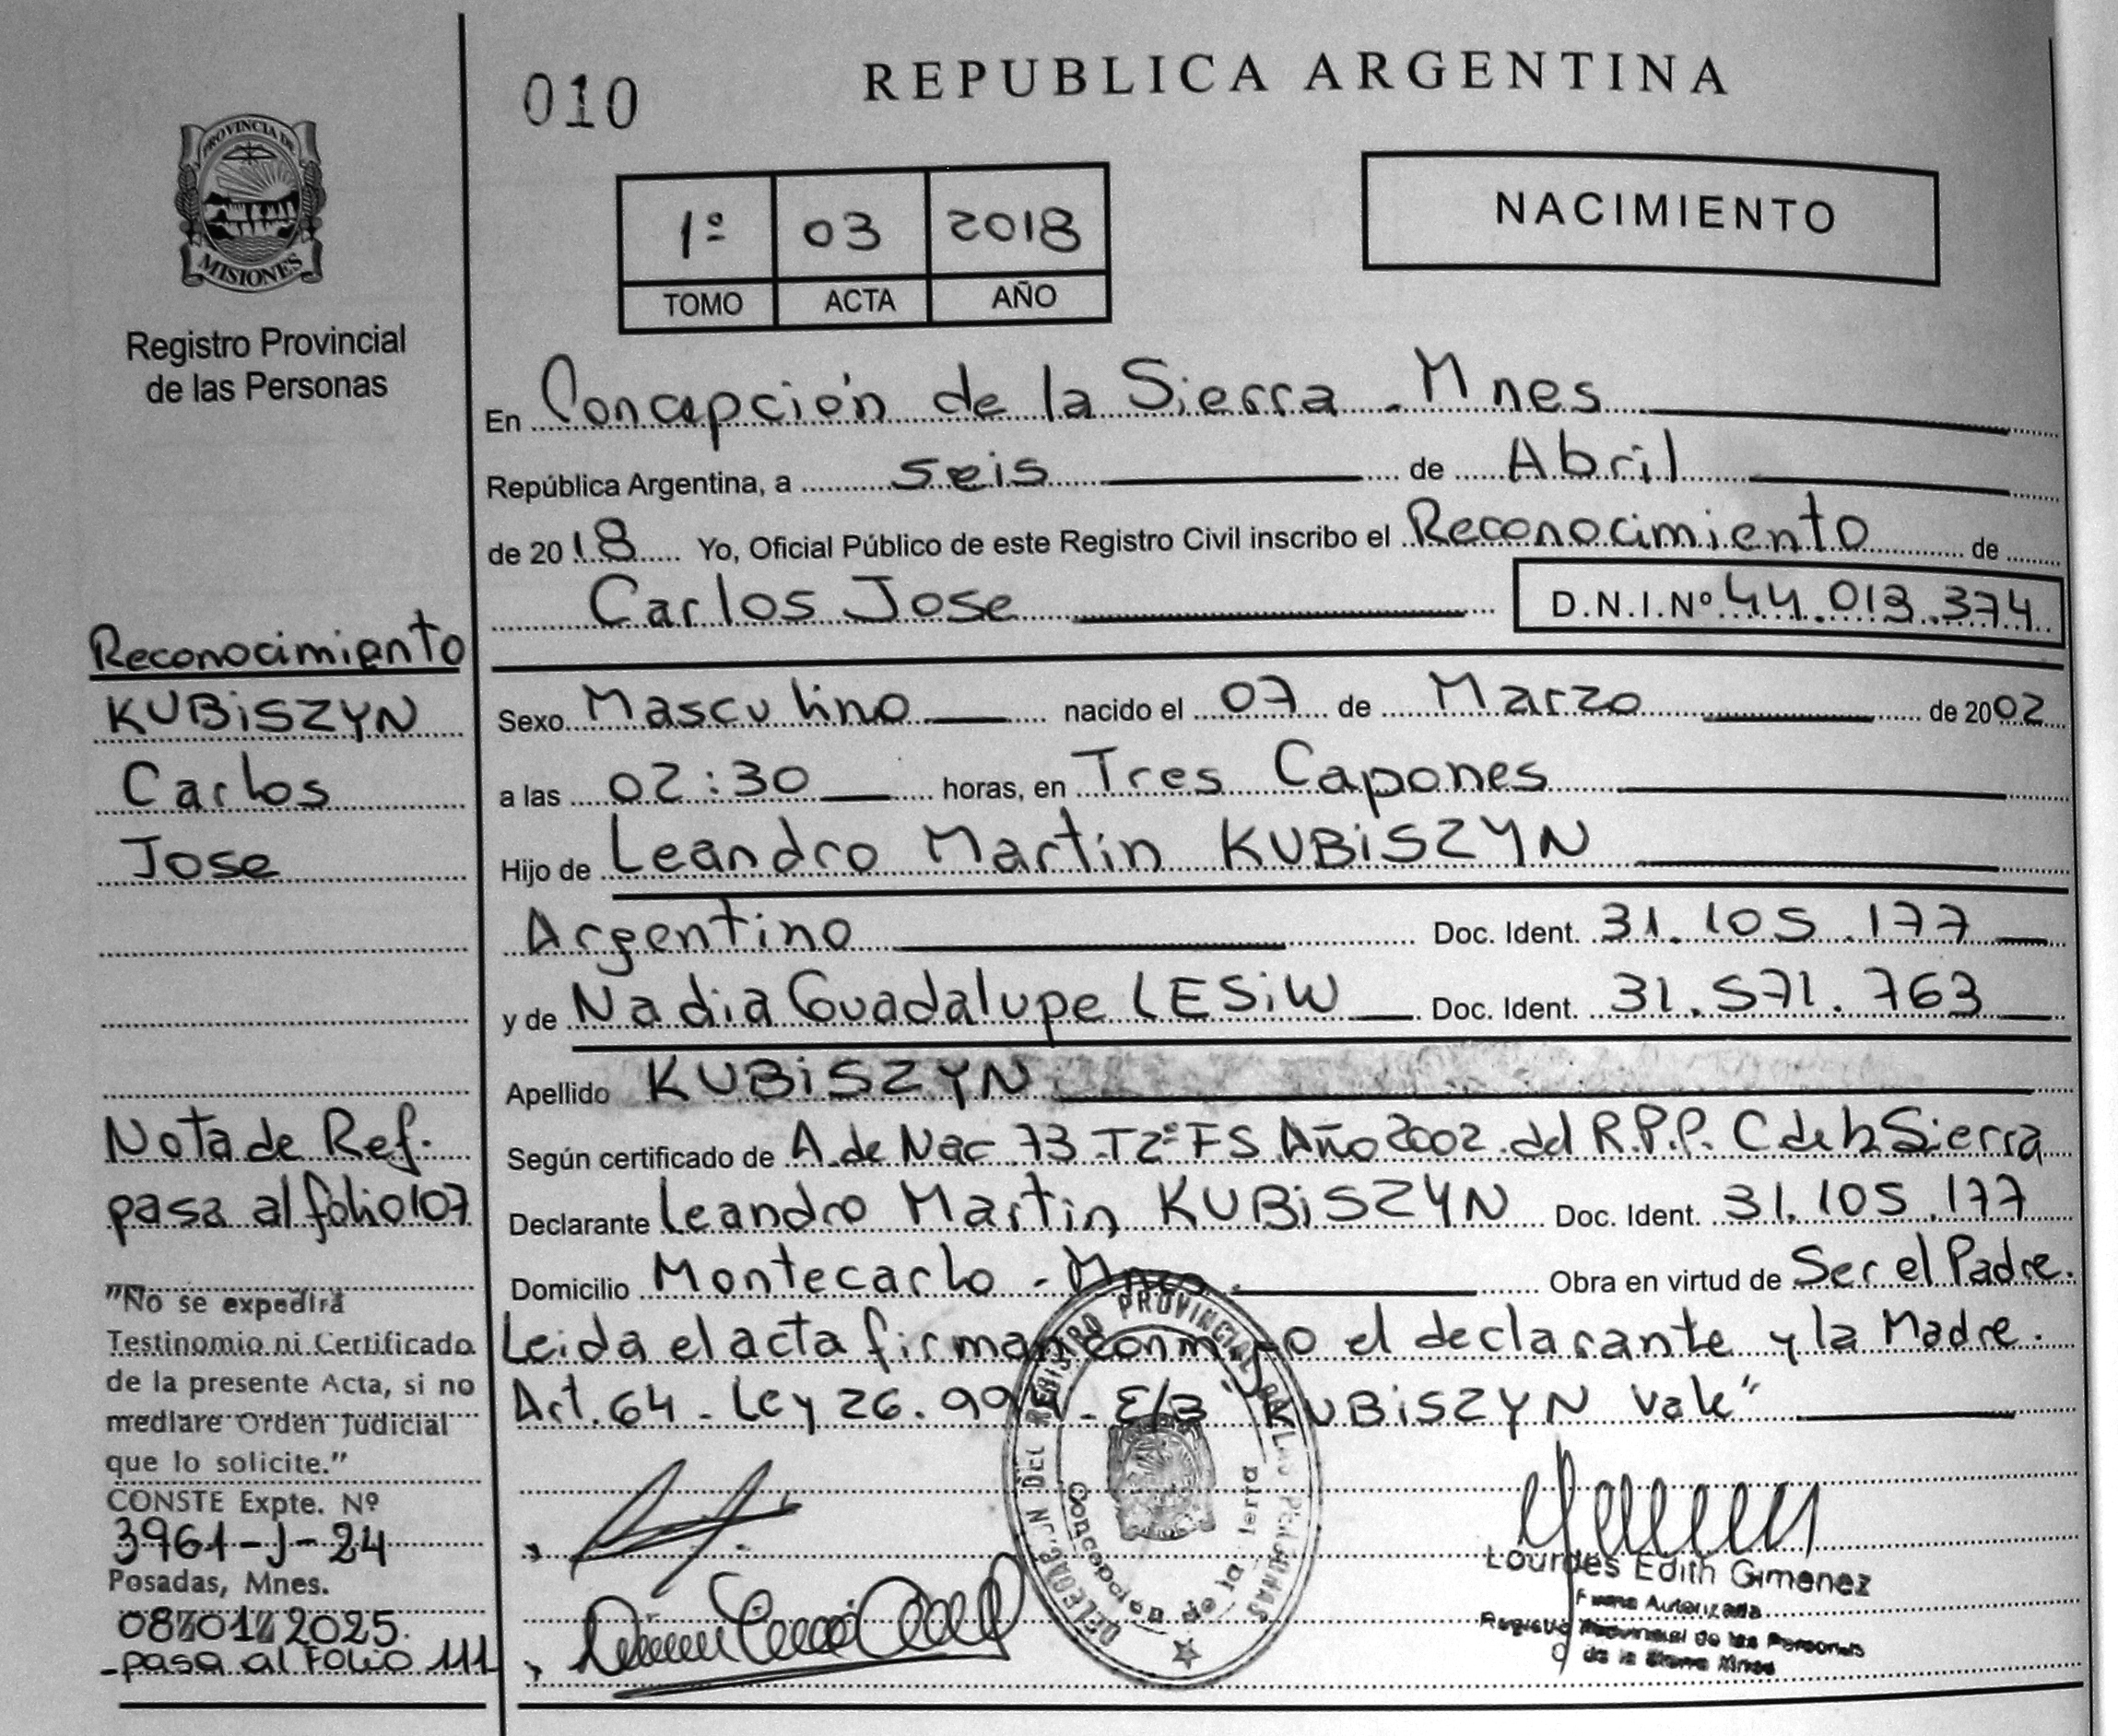 010
REPUBLICA ARGENTINA
PROVINCIA DE
MISIONES
Registro Provincial
de las Personas
1º 03 2018
TOMO ACTA AÑO
NACIMIENTO
En Concepción de la Sierra - Mnes
República Argentina, a seis de Abril
de 2018 Yo, Oficial Público de este Registro Civil inscribo el Reconocimiento de
Carlos Jose D.N.I.Nº 44.013.374
Sexo Masculino nacido el 07 de Marzo de 2002
a las 02:30 horas, en Tres Capones
Hijo de Leandro Martin KUBiSZYN
Argentino Doc. Ident. 31.105.177
y de Nadia Guadalupe LESiW Doc. Ident. 31.571.763
Apellido KUBiSZYN
Según certificado de A. de Nac 73 T2º FS Año 2002 del R.P.P. C de la Sierra
Declarante Leandro Martin KUBiSZYN Doc. Ident. 31.105.177
Domicilio Montecarlo - Mnes. Obra en virtud de Ser el Padre.
Leida el acta firman conmigo el declarante y la Madre.
Art. 64 - Ley 26.994 - E/3 "KUBiSZYN Vale"
Reconocimiento
KUBiSZYN
Carlos
Jose
Nota de Ref.
pasa al folio 107
"No se expedirá
Testinomio ni Certificado
de la presente Acta, si no
mediare Orden Judicial
que lo solicite."
CONSTE Expte. Nº
3961-J-24
Posadas, Mnes.
08 01 2025.
-pasa al Folio 111
DELEGAC.N DEL REGISTRO PROVINCIAL DE LAS PERSONAS
Concepcion de la ierra
Lourdes Edith Gimenez
Firma Autorizada
Registro Provincial de las Personas
C de la Sierra Mnes